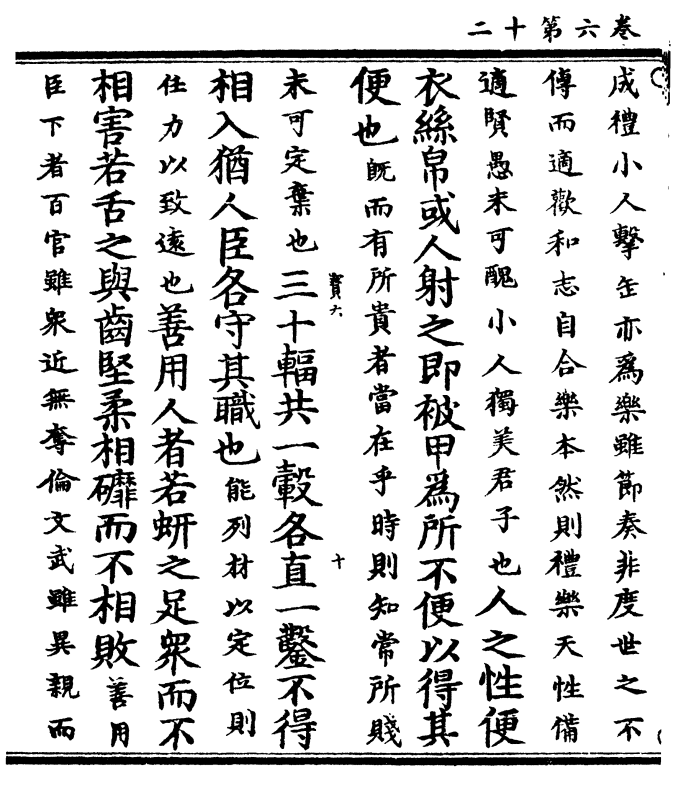 卷六第十二
成禮小人擊缶亦爲樂雖節奏非度世之不
傳而適歡和志自合樂本然則禮樂天性備
適賢愚未可醜小人獨美君子也人之性便
衣絲帛或人射之即被甲爲所不便以得其
便也旣而有所貴者當在乎時則知常所賤
未可定棄也三十輻共一轂各直一鑿不得
寶六
十
相入猶人臣各守其職也能列材以定位則
仕力以致遠也善用人者若蚈之足衆而不
相害若舌之與齒堅柔相磨而不相敗善用
臣下者百官雖衆近無奪倫文武雖異親而